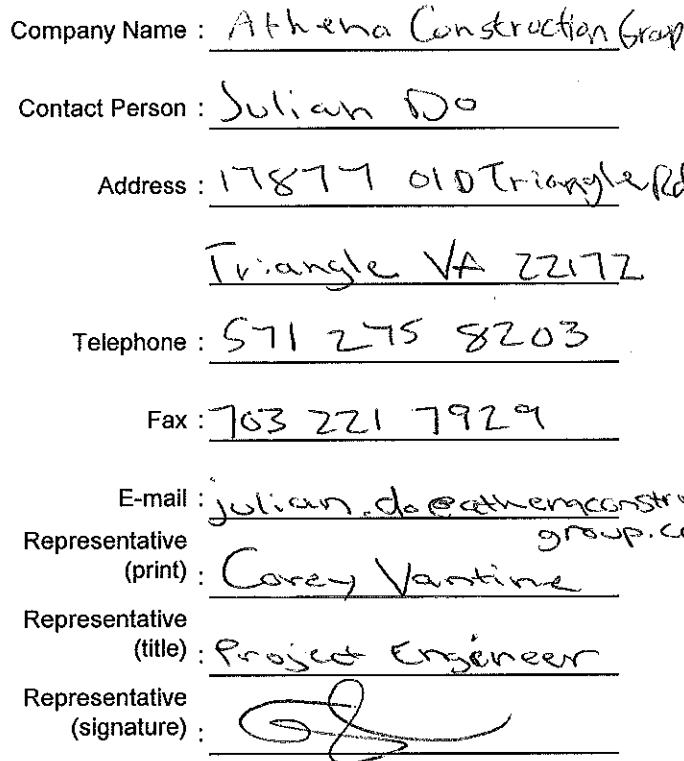 Company Name : Athena Construction Group
Contact Person : Julian Do
Address : 17877 Old Triangle Rd
Triangle VA 22172
Telephone : 571 275 8203
Fax : 703 221 7929
E-mail : julian.do@athenaconstru
group.co
Representative
(print) : Corey Vantine
Representative
(title) : Project Engineer
Representative
(signature) :